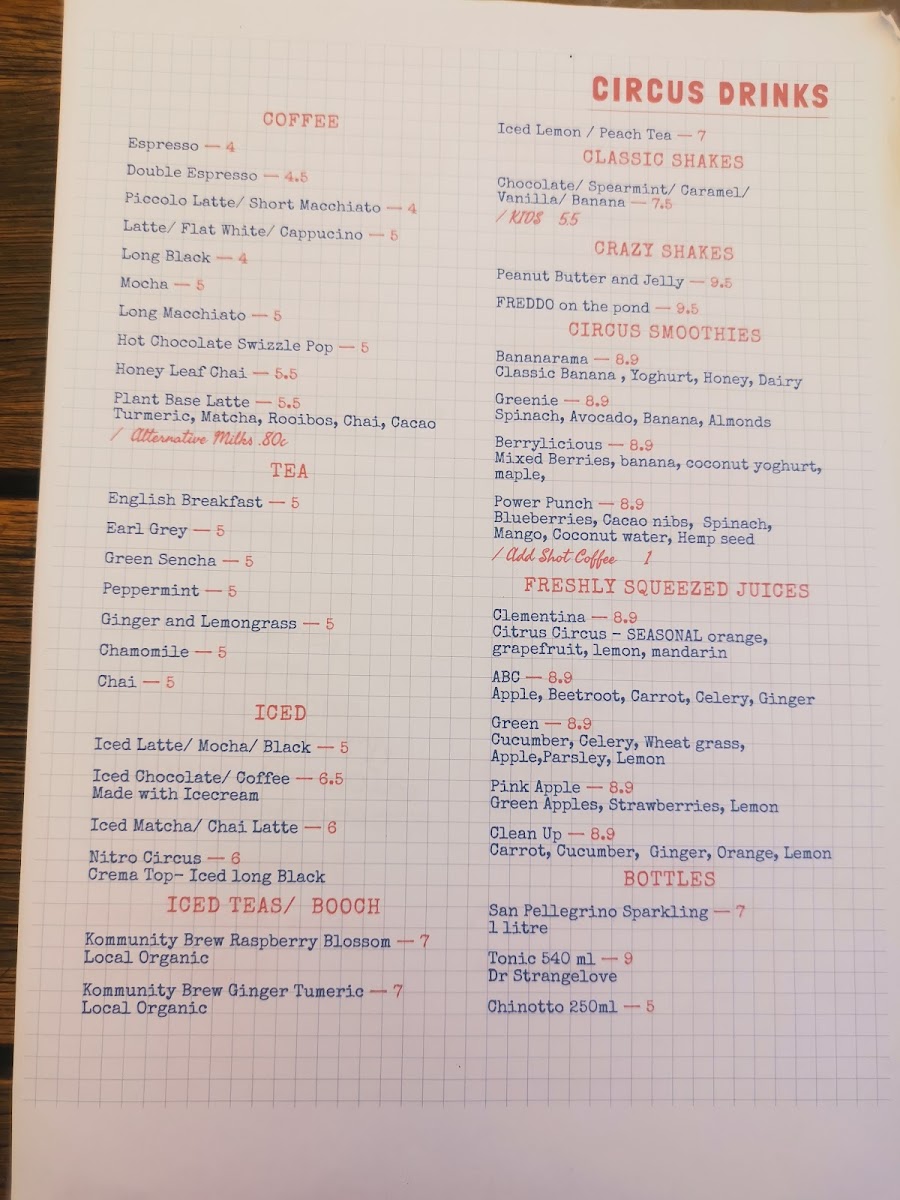 CIRCUS DRINKS
COFFEE
Espresso — 4
Double Espresso — 4.5
Piccolo Latte/ Short Macchiato — 4
Latte/ Flat White/ Cappucino — 5
Long Black — 4
Mocha — 5
Long Macchiato — 5
Hot Chocolate Swizzle Pop — 5
Honey Leaf Chai — 5.5
Plant Base Latte — 5.5
Turmeric, Matcha, Rooibos, Chai, Cacao
/ Alternative Milks .80c
TEA
English Breakfast — 5
Earl Grey — 5
Green Sencha — 5
Peppermint — 5
Ginger and Lemongrass — 5
Chamomile — 5
Chai — 5
ICED
Iced Latte/ Mocha/ Black — 5
Iced Chocolate/ Coffee — 6.5
Made with Icecream
Iced Matcha/ Chai Latte — 6
Nitro Circus — 6
Crema Top- Iced long Black
ICED TEAS/ BOOCH
Kommunity Brew Raspberry Blossom — 7
Local Organic
Kommunity Brew Ginger Tumeric — 7
Local Organic
Iced Lemon / Peach Tea — 7
CLASSIC SHAKES
Chocolate/ Spearmint/ Caramel/
Vanilla/ Banana — 7.5
/ KIDS 5.5
CRAZY SHAKES
Peanut Butter and Jelly — 9.5
FREDDO on the pond — 9.5
CIRCUS SMOOTHIES
Bananarama — 8.9
Classic Banana , Yoghurt, Honey, Dairy
Greenie — 8.9
Spinach, Avocado, Banana, Almonds
Berrylicious — 8.9
Mixed Berries, banana, coconut yoghurt,
maple,
Power Punch — 8.9
Blueberries, Cacao nibs, Spinach,
Mango, Coconut water, Hemp seed
/ Add Shot Coffee 1
FRESHLY SQUEEZED JUICES
Clementina — 8.9
Citrus Circus - SEASONAL orange,
grapefruit, lemon, mandarin
ABC — 8.9
Apple, Beetroot, Carrot, Celery, Ginger
Green — 8.9
Cucumber, Celery, Wheat grass,
Apple,Parsley, Lemon
Pink Apple — 8.9
Green Apples, Strawberries, Lemon
Clean Up — 8.9
Carrot, Cucumber, Ginger, Orange, Lemon
BOTTLES
San Pellegrino Sparkling — 7
1 litre
Tonic 540 ml — 9
Dr Strangelove
Chinotto 250ml — 5